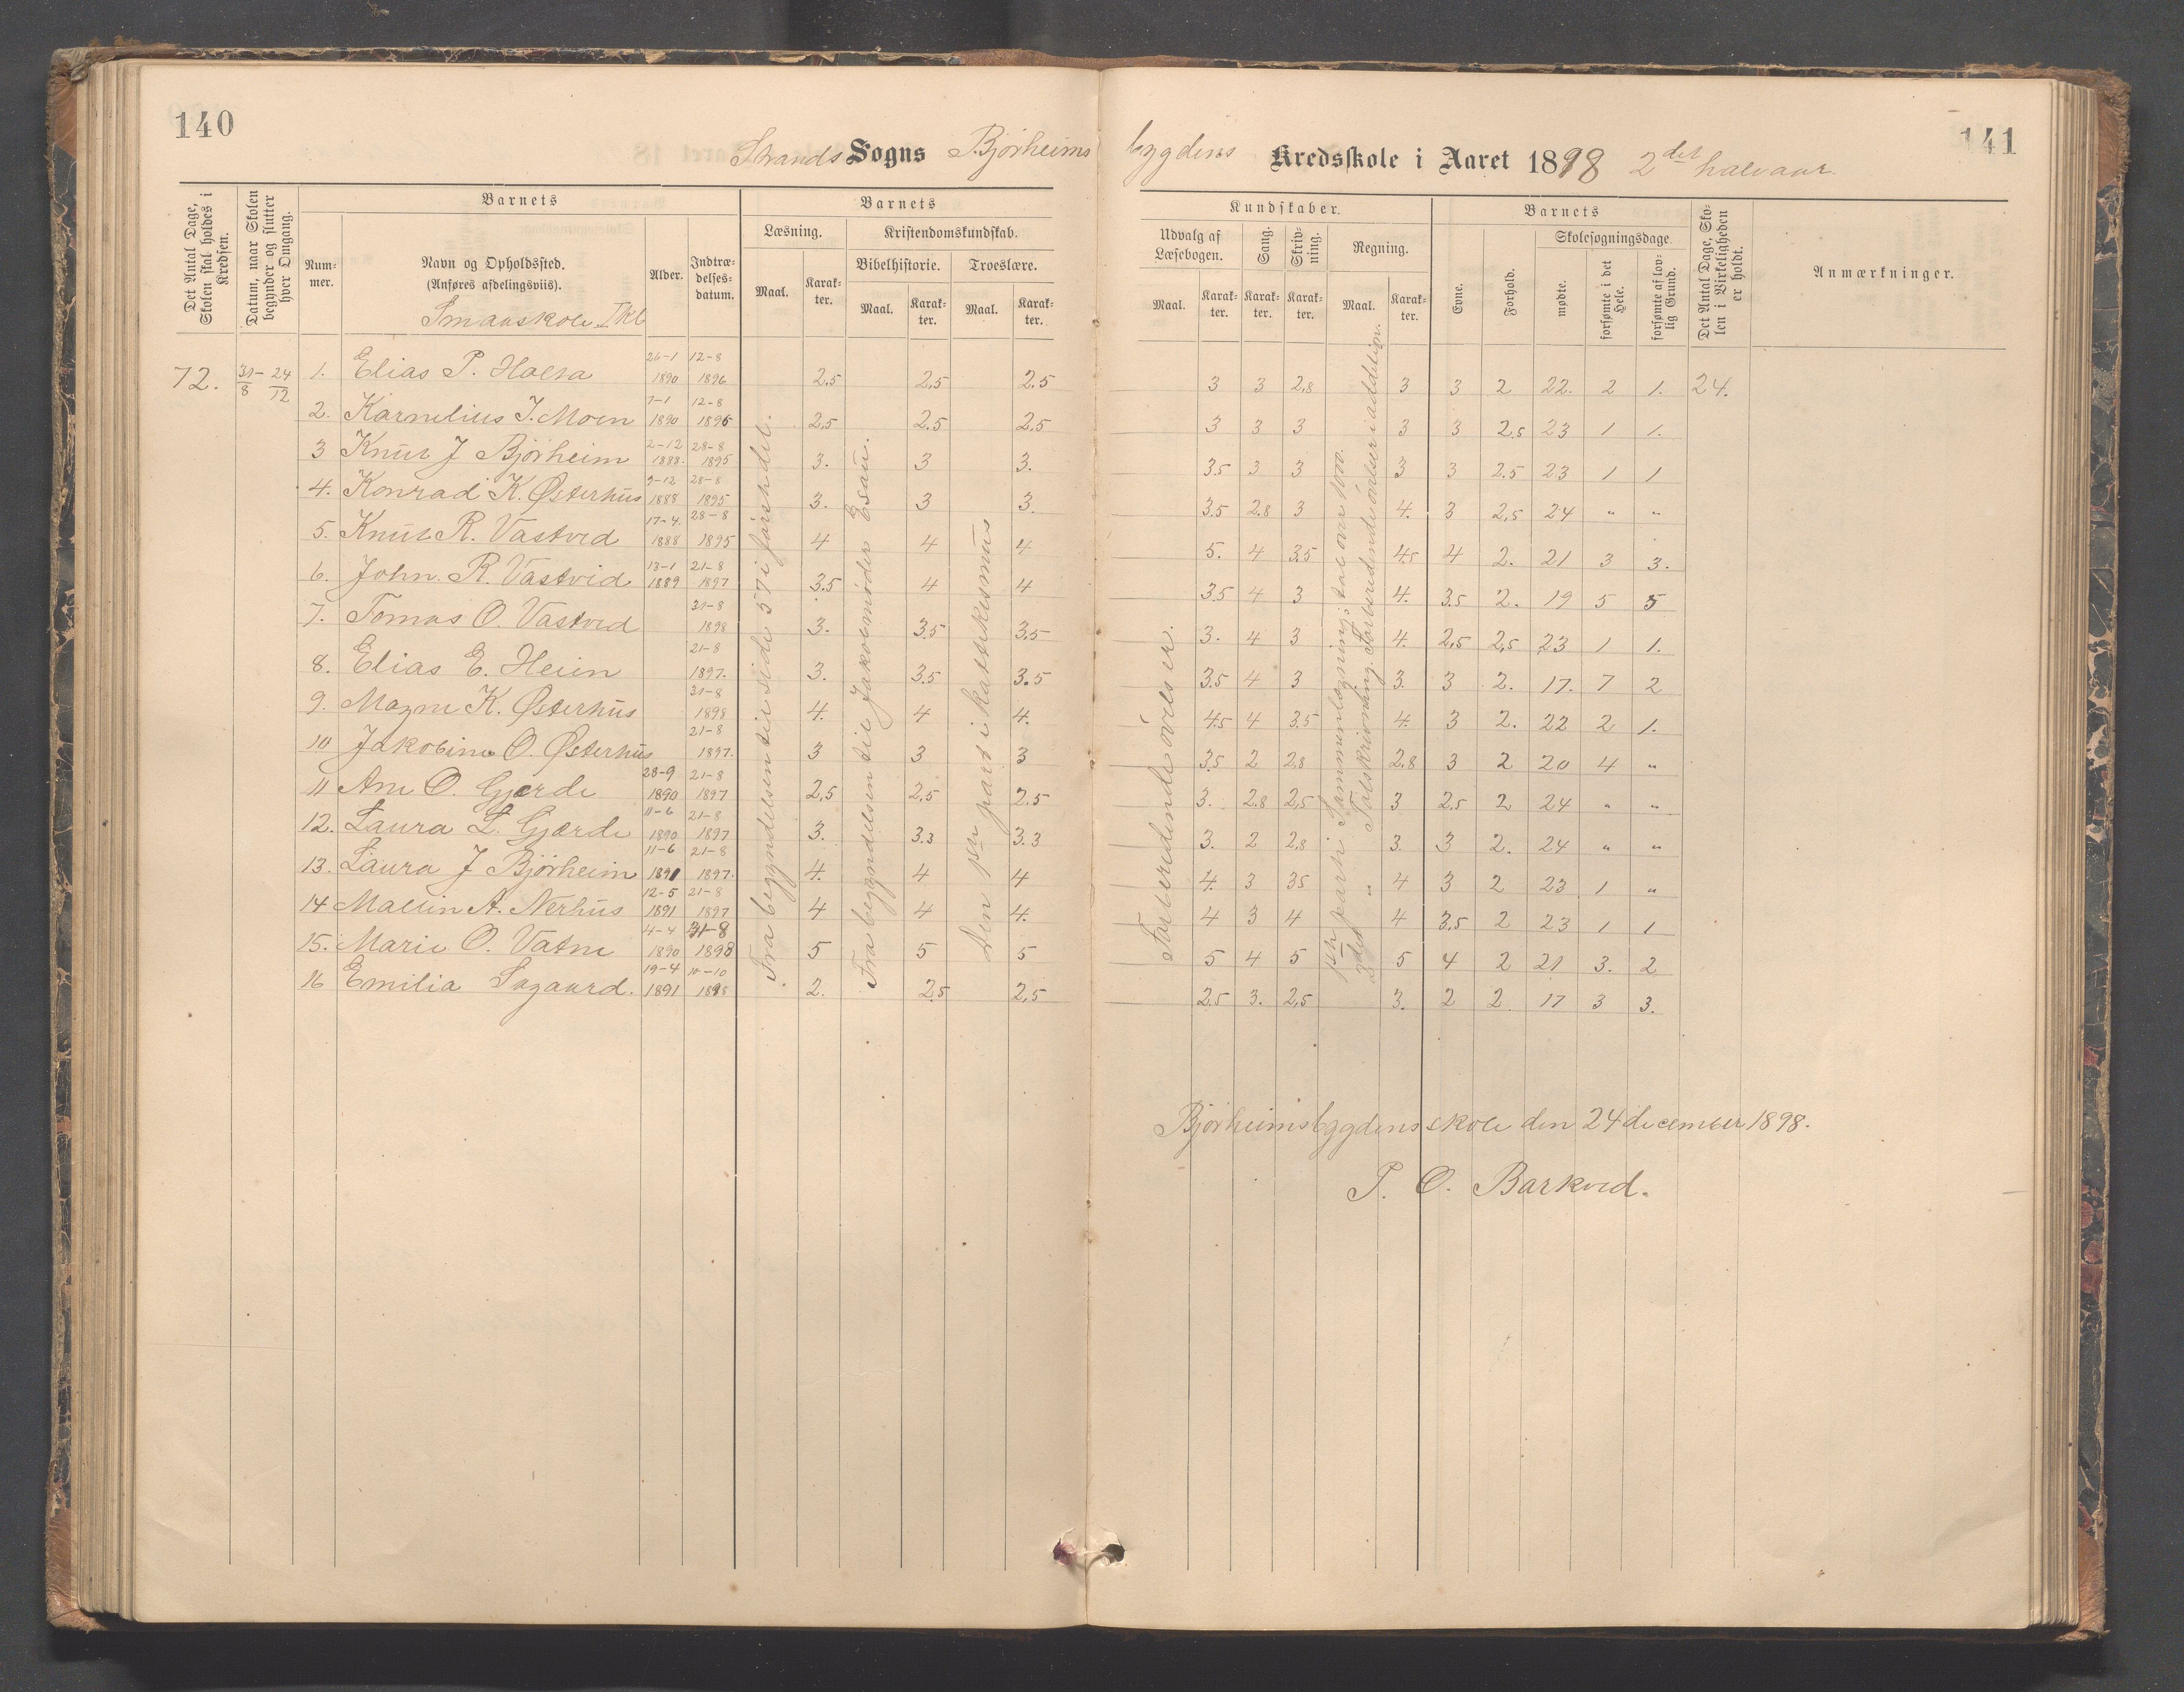 140
141
Strands Sogns Bjørheims bygdens Kredsskole i Aaret 1898 2det halvaar.
Det Antal Dage, Skolen skal holdes i Kredsen.
Datum, naar Skolen begynder og slutter hver Omgang.
Barnets
Nummer.
Navn og Opholdssted.
(Anføres afdelingsviis).
Smaaskole I Kl
Alder.
Indtrædelses-datum.
Barnets
Læsning.
Maal.
Karakter.
Kristendomskundskab.
Bibelhistorie.
Maal.
Karakter.
Troeslære.
Maal.
Karakter.
Kundskaber.
Udvalg af Læsebogen.
Maal.
Karakter.
Sang.
Karakter.
Skrivning.
Karakter.
Regning.
Maal.
Karakter.
Barnets
Evne.
Forhold.
Skolesøgningsdage.
mødte.
forsømte i det Hele.
forsømte af lovlig Grund.
Det Antal Dage, Skolen i Virkeligheden er holdt.
Anmærkninger.
72. 31/8 – 24/12 1. Elias P. Holta 26-1 1890 12-8 1896 2,5 2,5 2.5 3 3 2,8 3 3 2 22. 2 1. 24.
2. Karnelius T. Moen 7-1 1890 12-8 1896 2,5 2.5 2,5 3 3 3 3 3 2.5 23 1 1.
3 Knut J Bjørheim 2-12 1888. 28-8 1895 3. 3 3. 3.5 3 3 3 3 2.5 23 1 1
4. Konrad K. Østerhus 9-12 1888 28-8 1895 3. 3 3. 3.5 2.8 3 4. 3 2,5 24 " "
5. Knut R. Vastved 17-4. 1888 28-8 1895 4 4 4 5. 4 3.5 4.5 4 2. 21 3 3.
6. John. R. Vastvid 13-1 1889 21-8 1897 3.5 4 4 3.5 4 3 4. 3.5 2. 19 5 5
7. Tomas O. Vastved 31-8 1898 3. 3.5 3.5 3. 4 3 4. 2,5 2,5 23 1 1.
8. Elias E. Heien 21-8 1897. 3. 3.5 3.5 3.5 4 3 3. 3 2. 17. 7 2
9. Magne K. Østerhus 31-8 1898 4. 4 4. 4.5 4 3.5 4. 3 2. 22 2 1.
10 Jakobine O. Østerhus 21-8 1897. 3 3 3 3.5 2 2.8 2.8 3 2 20 4 "
11 Ane O. Gjerde 28-9 1890 21-8 1897 2,5 2,5 2.5 3. 2.8 2,5 3 2.5 2 24 " "
12. Laura L. Gjærde 11-6 1890 21-8 1897 3. 3.3 3.3 3. 2 2,8 3. 3 2. 24 " "
13. Laura J Bjørheim 11-6 1891 21-8 1897. 4. 4 4 4. 3 3.5 4 3 2 23 1 "
14 Mallin A. Nerhus 12-5 1891 21-8 1897 4 4 4. 4 3 4 4 3,5 2 23 1 1
15. Marie O. Vatne 4-4 1890 31-8 1898 5 5 5 5 4 5 5 4 2 21 3. 2
16 Emilia Sagaard. 19-4 1891 10-10 1898 2. 2.5 2,5 2.5 3. 2,5 3. 2 2 17 3 3.
Fra begyndelsen til side 57 i første del.
Fra begyndelsen til Jakob møder Esau.
Den 1ste part i Katekismus
Forberedende øvelser.
1ste parti: Sammenlægning; tal over 1000.
2det " Talskrivning. Forberedende øvelser i addition.
Bjørheimsbygdens skole den 24 december 1898.
P. O. Barkved.